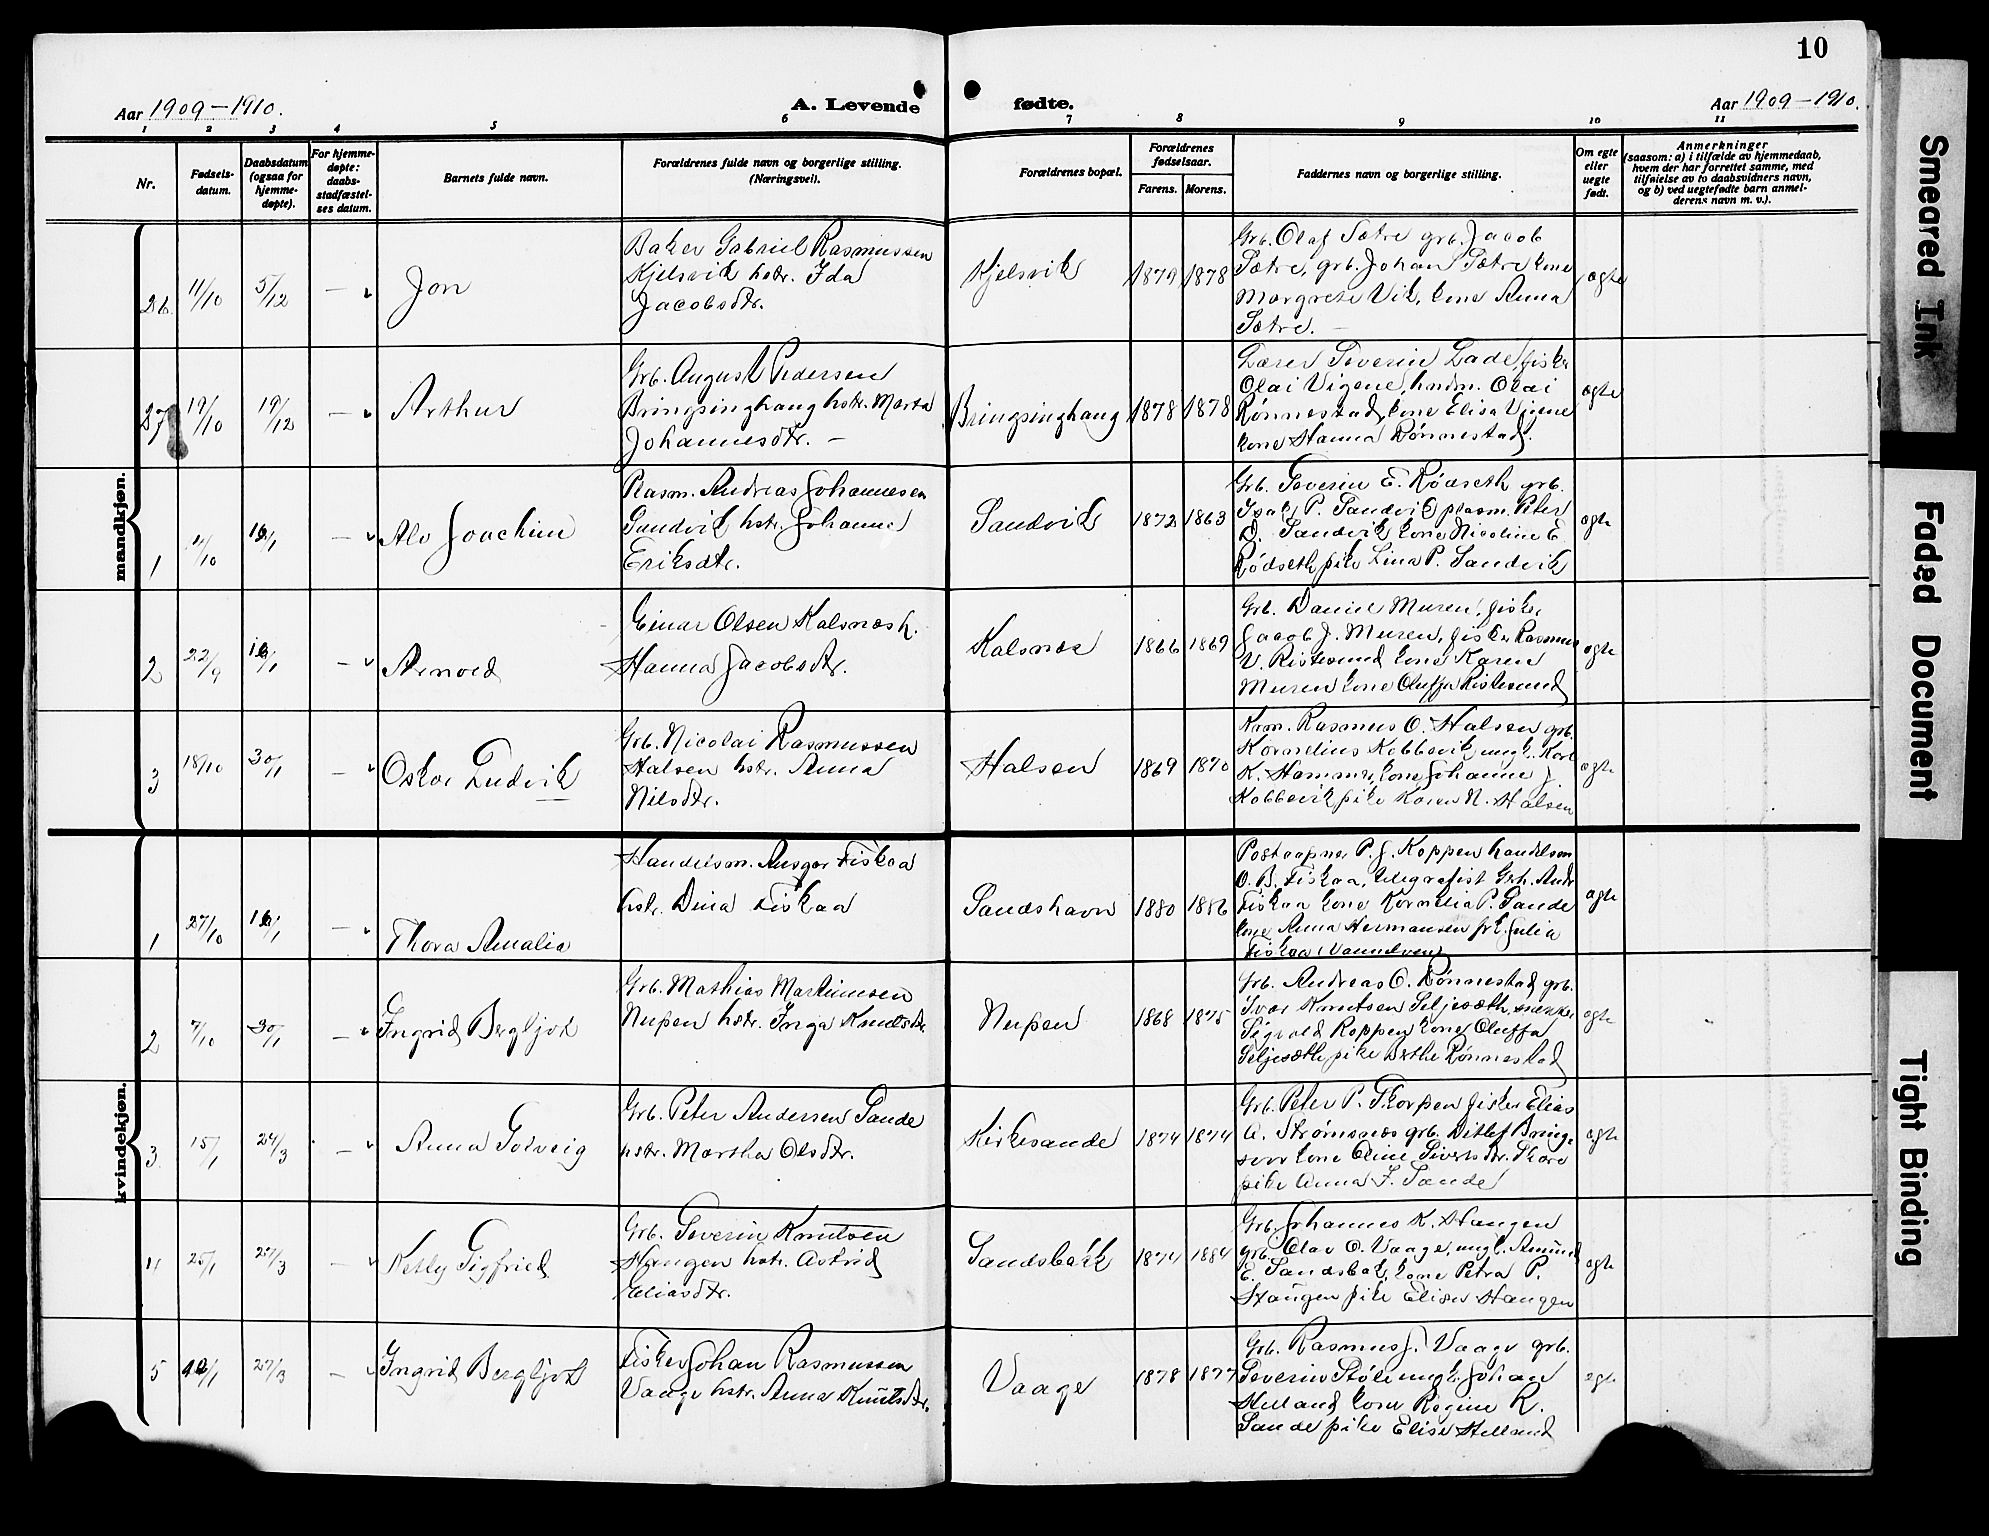 10
Aar 1909-1910.
A. Levende
fødte.
Aar 1909-1910.
1 2 3 4 5 6 7 8 9 10 11
Nr.
Fødsels-
datum.
Daabsdatum
(ogsaa for
hjemme-
døpte).
For hjemme-
døpte:
daabs-
stadfæstel-
ses datum.
Barnets fulde navn.
Forældrenes fulde navn og borgerlige stilling.
(Næringsvei).
Forældrenes bopæl.
Forældrenes
fødselsaar.
Farens. Morens.
Faddernes navn og borgerlige stilling.
Om egte
eller
uegte
født.
Anmerkninger
(saasom: a) i tilfælde av hjemmedaab,
hvem der har forrettet samme, med
tilføielse av to daabsvidners navn,
og b) ved uegtefødte barn anmel-
derens navn m. v.).
mandkjøn.
26 11/10 5/12 — Jon
Baker Gabriel Rasmussen
Kjelsvik hstr. Ida
Jacobsdtr.
Kjelsvik 1879 1878
Grb. Olaf Sætre grb. Jacob
Sætre, grb. Johan Sætre kone
Margrete Vik, kone Anna
Sætre. —
egte
27 19/10 19/12 — Arthur
Grb. August Pedersen
Bringsinghaug hstr. Marta
Johannesdtr. —
Bringsinghaug 1878 1878
Lærer Severin Lade, fisker
Olai Vigene, hndm. Olai
Rønnestad, kone Elisa Vigene
kone Hanna Rønnestad.
egte
1 11/10 16/1 — Alv Joachim
Plasm. Andreas Johannesen
Sandvik hstr. Johanne
Eriksdtr.
Sandvik 1872 1863
Grb. Severin E. Rødseth grb.
Isak P. Sandvik plasm. Peter
D. Sandvik kone Nicoline E.
Rødseth pike Lina P. Sandvik
egte
2 22/9 16/1 — Arnold
Einar Olsen Kalsnes h.
Hanna Jacobsdtr.
Kalsnes 1866 1869
Grb. Daniel Muren, fisker
Jacob J. Muren, fisker Rasmus
V. Ristesund kone Karen
Muren kone Oluffa Ristesund
egte
3 18/10 30/1 — Oskar Ludvik
Grb. Nicolai Rasmussen
Halsen hstr. Anna
Nilsdtr.
Halsen 1869 1870
Krm. Rasmus O. Halsen grb.
Kornelius Kobbevik ungk. Karl
K. Hammer, kone Johanne J.
Kobbevik pike Karen N. Halsen
egte
kvindekjøn.
1 27/10 16/1 — Thora Amalia
Handelsm. Ansgar Fiskaa
hstr. Dina Fiskaa
Sandshavn 1880 1886
Postaapner P. J. Koppen handelsm
O. B. Fiskaa, telegrafist Grh. Andr
Fiskaa kone Kornelia P. Sande
kone Anna Hermansen frk. Julia
Fiskaa (Vannelven)
egte
2 7/10 30/1 — Ingrid Bergljot
Grb. Mathias Martinusen
Nupen hstr. Inga Knutsdtr
Nupen 1868 1875
Grb. Andreas O. Rønnestad grb.
Ivar Knutsen Seljesæth, snekker
Sigvald Koppen kone Oluffa
Seljesæth pike Berthe Rønnestad
egte
3 15/1 24/3 — Anna Solveig
Grb. Peter Andersen Sande
hstr. Martha Olsdtr.
Kirkesande 1874 1874
Grb. Peter P. Thorpen fisker Elias
A. Strømsnes grb. Ditlef Bringe
svor kone Oline Sivertsdtr. Skare
pike Anna J. Sande
egte
4 25/1 27/3 — Ketly Sigfried
Grb. Severin Knutsen
Haugen hstr. Astrid
Eliasdtr.
Sandsbakk 1874 1884
Grb. Johannes K. Haugen
grb. Olav O. Vaage, ungk. Amund
E. Sandsbak, kone Petra P.
Haugen pike Elisa Haugen
egte
5 27/3 — Ingrid Bergljot
Fisker Johan Rasmussen
Vaage hstr. Anna Knutsdtr.
Vaage 1878 1877
Grb. Rasmus J. Vaage grb.
Severin Støle ungk. Johan
Helland kone Regine R.
Sande pike Elise Helland
egte
Smeared Ink
Faded Document
Tight Binding